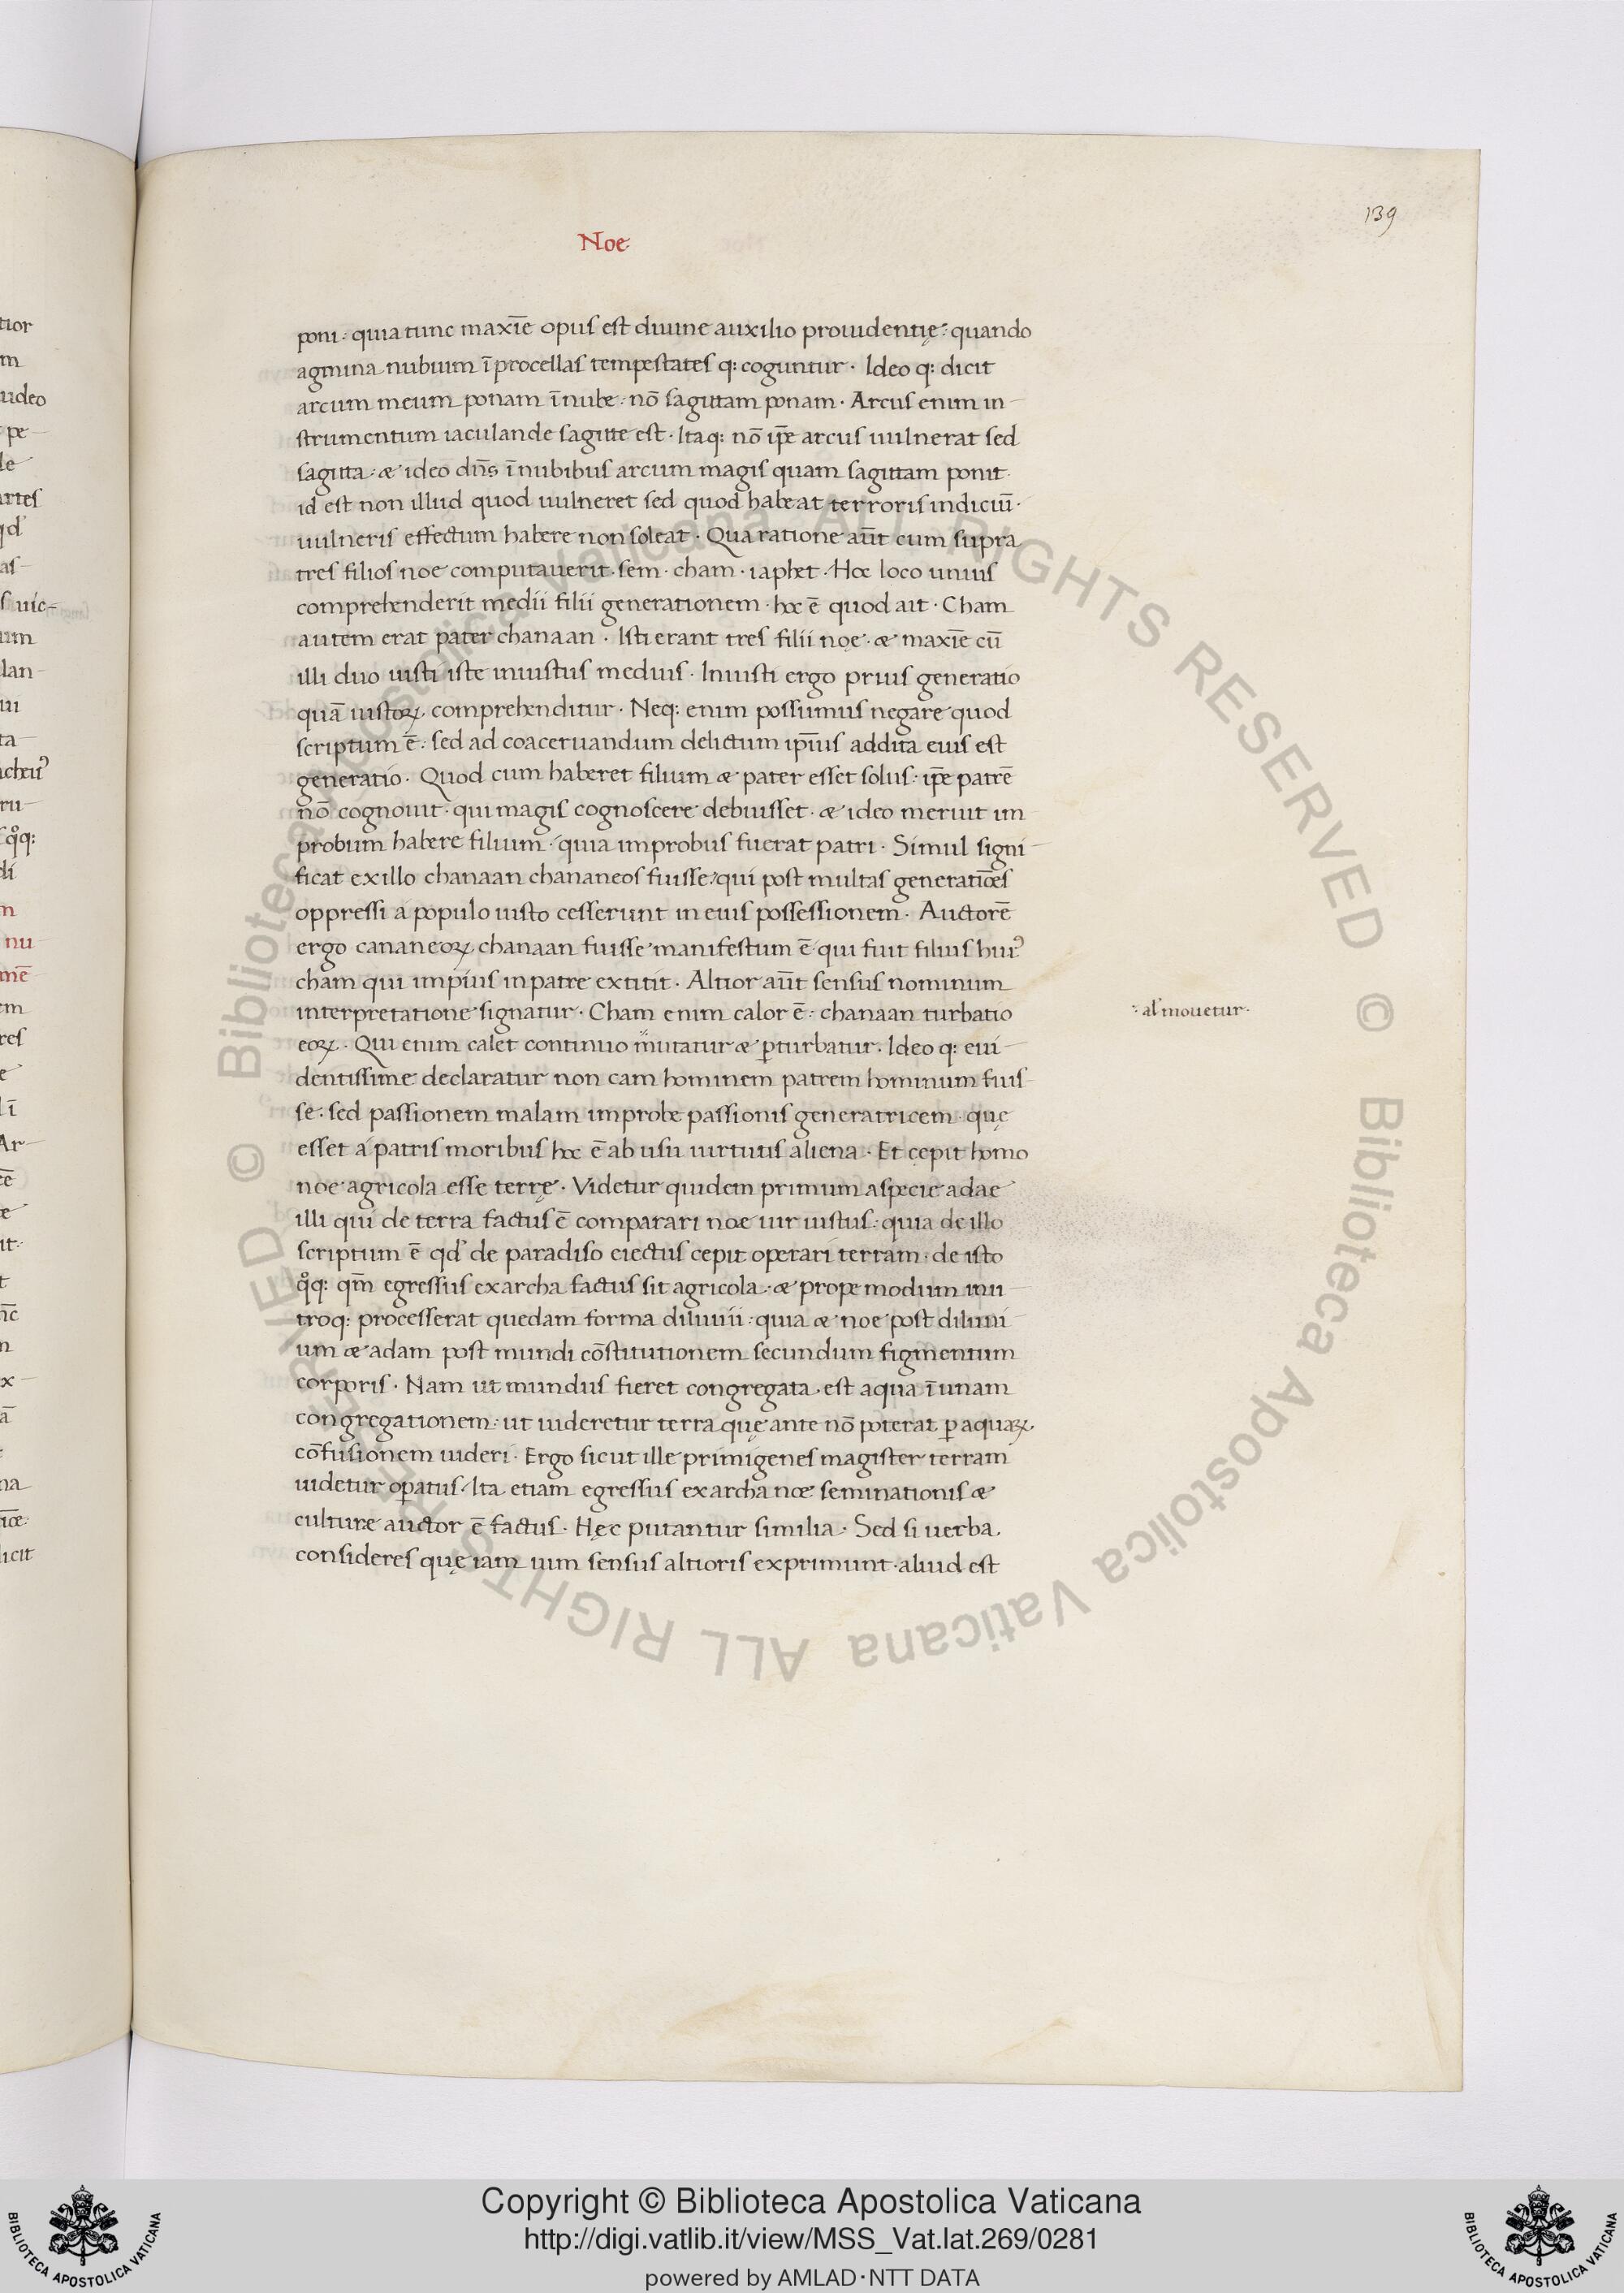 139
Noe
poni : quia tunc maxīe opus est diuine auxilio prouidentię : quando
agmina nubium ī procellas tempestates q: coguntur · Ideo q: dicit
arcum meum ponam ī nube : nō sagittam ponam · Arcus enim in-
strumentum iaculande sagitte est · Itaq: nō ip̄e arcus uulnerat sed
sagitta : & ideo dn̄s ī nubibus arcum magis quam sagittam ponit
id est non illud quod uulneret sed quod habeat terroris indiciū ·
uulneris effectum habere non soleat · Qua ratione aūt cum supra
tres filios noe computauerit · sem · cham · iaphet · Hoc loco unius
comprehenderit medii filii generationem · hoc ē quod ait · Cham
autem erat pater chanaan · Isti erant tres filii noę · & maxīe cū
illi duo iusti iste iniustus medius · Iniusti ergo prius generatio
quā iustoꝝ comprehenditur · Neq: enim possumus negare quod
scriptum ē : sed ad coaceruandum delictum ip̄ius addita eius est
generatio · Quod cum haberet filium & pater esset solus : ip̄e patrē
nō cognouit · qui magis cognoscere debuisset · & ideo meruit im
probum habere filium · quia improbus fuerat patri · Simul signi-
ficat ex illo chanaan chananeos fuisse : qui post multas generatiōes
oppressi a populo iusto cesserunt in eius possessionem · Auctorē
ergo cananeoꝝ chanaan fuisse manifestum ē · qui fuit filius huiꝰ
cham qui impius in patre extitit · Altior aūt sensus nominum
interpretatione signatur · Cham enim calor ē : chanaan turbatio
eoꝝ · Qui enim calet continuo mutatur & ꝑturbatur · Ideo q: eui-
al' mouetur ·
dentissime declaratur non cam hominem patrem hominum fuis-
se : sed passionem malam improbe passionis generatricem · quę
esset a patris moribus hoc ē ab usu uirtutis aliena · Et cępit homo
noe agricola esse terrę · Videtur quidem primum a specie adae
illi qui de terra factus ē comparari noe uir iustus : quia de illo
scriptum ē qd' de paradiso eiectus cepit operari terram : de isto
qͦq: qm̄ egressus ex archa factus sit agricola : & prope modum in u-
troq: processerat quedam forma diluuii : quia & noe post diluui-
um & adam post mundi cōstitutionem secundum figmentum
corporis · Nam ut mundus fieret congregata · est aqua ī unam
congregationem : ut uideretur terra quę ante nō poterat ꝑ aquaꝝ
cōfusionem uideri · Ergo sicut ille primigenes magister terram
uidetur oꝑatus : Ita etiam egressus ex archa noe seminationis &
culture auctor ē factus · Hęc putantur similia · Sed si uerba
consideres quę iam uim sensus altioris exprimunt · aliud est
Copyright © Biblioteca Apostolica Vaticana
http://digi.vatlib.it/view/MSS_Vat.lat.269/0281
powered by AMLAD·NTT DATA
BIBLIOTECA APOSTOLICA VATICANA
BIBLIOTECA APOSTOLICA VATICANA
© Biblioteca Apostolica Vaticana ALL RIGHTS RESERVED
© Biblioteca Apostolica Vaticana ALL RIGHTS RESERVED